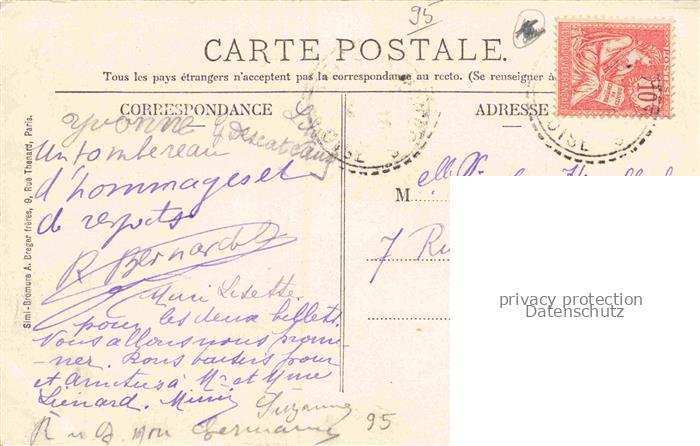 95
CARTE POSTALE.
Tous les pays étrangers n'acceptent pas la correspondance au recto. (Se renseigner à
CORRESPONDANCE
ADRESSE
10
OISE
Simi-Bromure A. Breger frères, 9, Rue Thenard, Paris.
Yvonne
Un tombereau
d'hommages et
de respects
R Bernard
Merci Lisette
pour les deux billets.
Vous allons nous prome-
-ner. Bons baisers pour
et amitiés à Mr et Mme
Liénard. Mimi
Suzanne
Germaine
95
M elle
7 Ru
privacy protection
Datenschutz